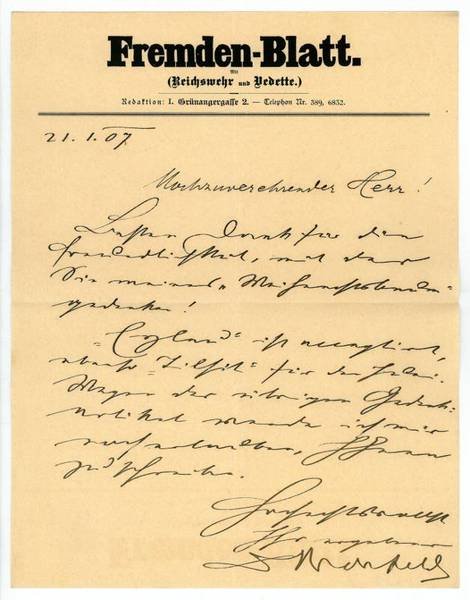 Fremden-Blatt.
Mit
(Reichswehr und Vedette.)
Redaktion: I. Grünangergasse 2. — Telephon Nr. 389, 6832.
21. I. 07.
Hochzuverehrender Herr!
Besten Dank für die
Freundlichkeit, mit der
Sie meines „Weihnachtsbaum"
gedenken!
„Eylau" ist acceptirt,
ebenso „Tilsit" für den Juli.
Wegen der übrigen Gedenk-
artikel werde ich mir
Ihnen
zu schreiben.
Hochachtungsvollst
Ihr ergebener